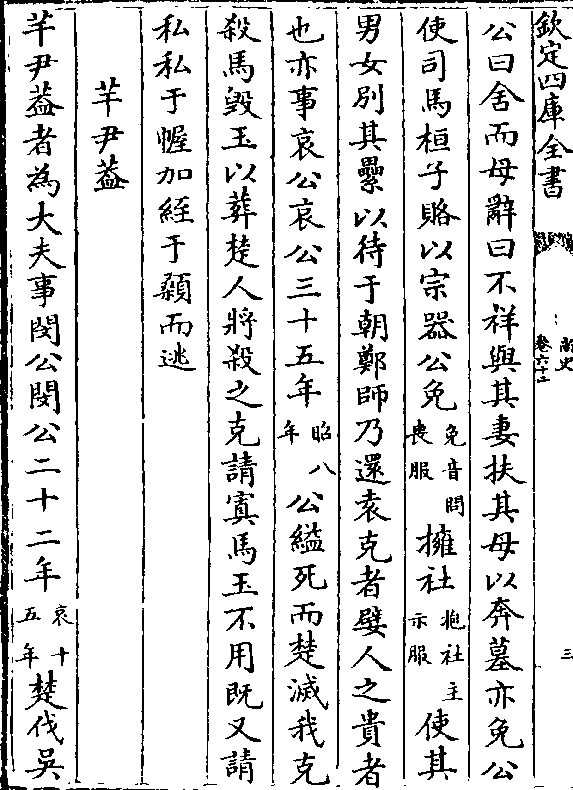 欽定四庫全書
尚史
卷六十二
三
公曰舍而母辭曰不祥與其妻扶其母以奔墓亦免公
使司馬桓子賂以宗器公免免音問喪服擁社抱社主示服使其
男女別其纍以待于朝鄭師乃還袁克者嬖人之貴者
也亦事哀公哀公三十五年昭八年公縊死而楚滅我克
殺馬毀玉以葬楚人將殺之克請寘馬玉不用既又請
私私于幄加絰于顙而逃
芊尹葢
芊尹葢者為大夫事閔公閔公二十二年哀十五年楚伐吳